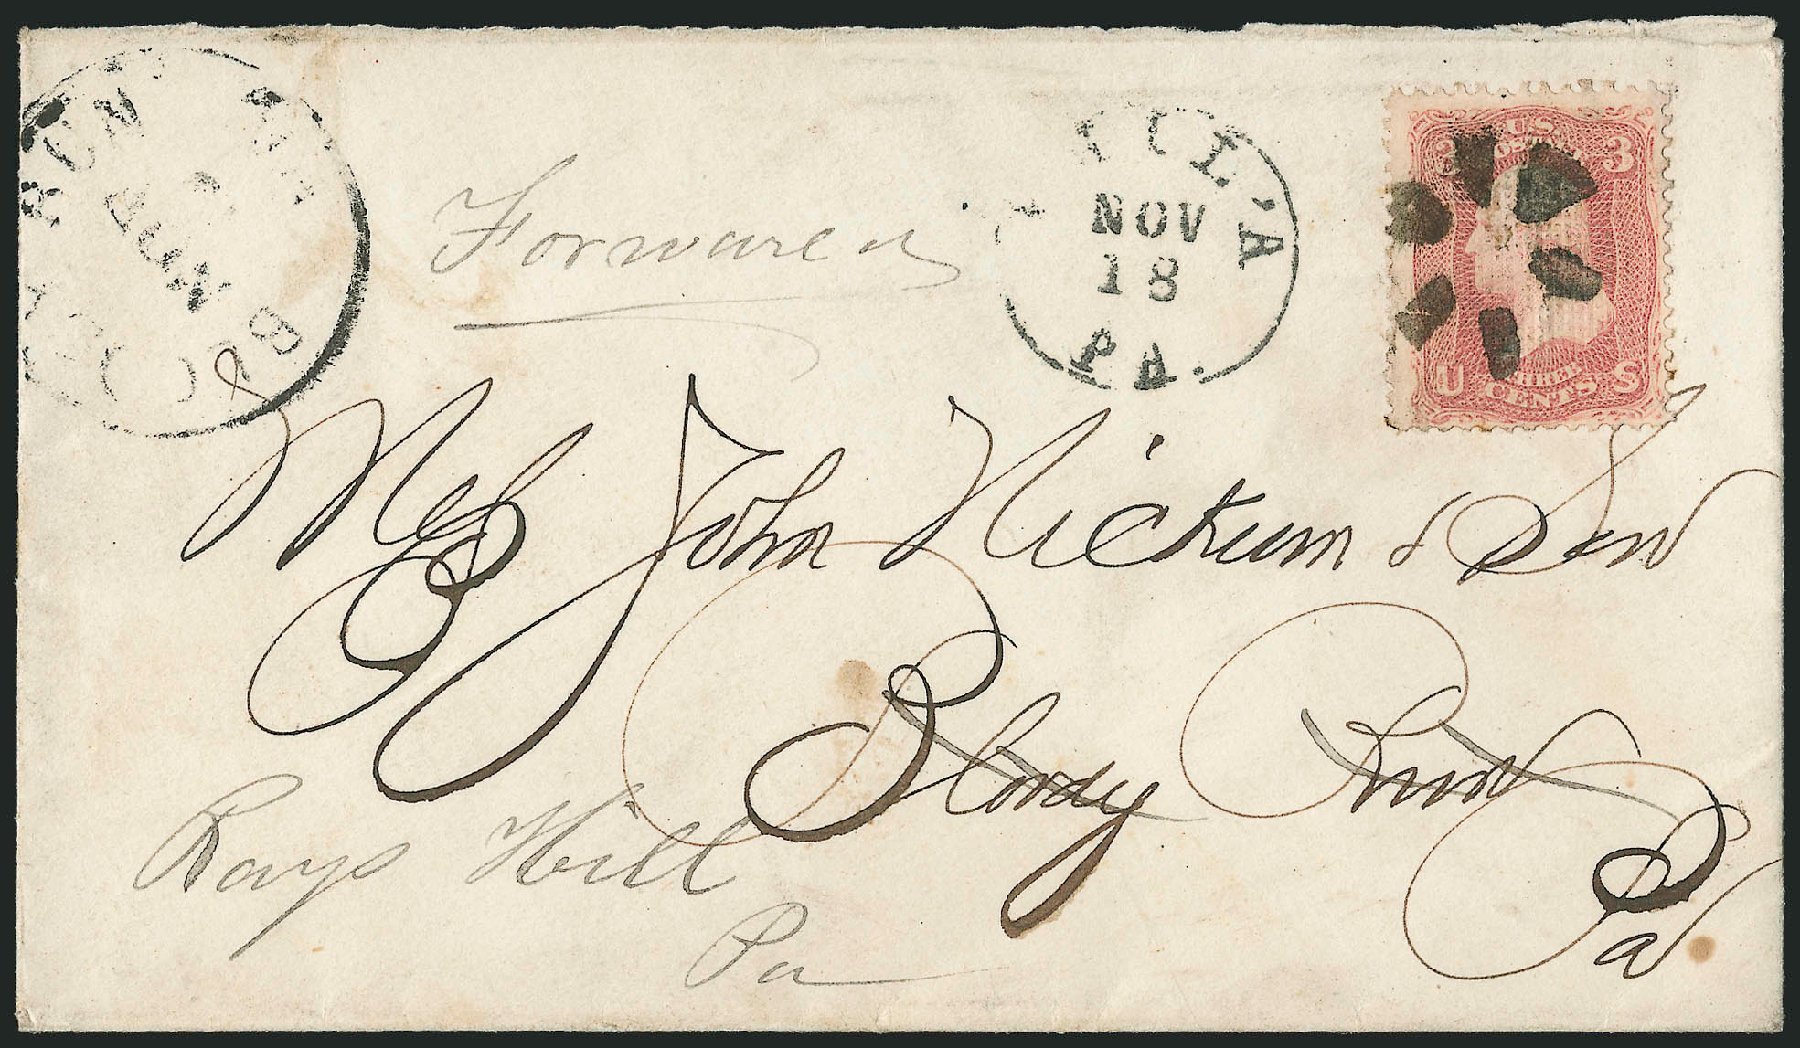 BLOODY RUN
NOV
Forwarded
PHIL'A
NOV
18
PA.
3 U.S. POSTAGE 3
U THREE CENTS S
Mess John Nickum & Son
Bloody Run
Pa
Rays Hill
Pa